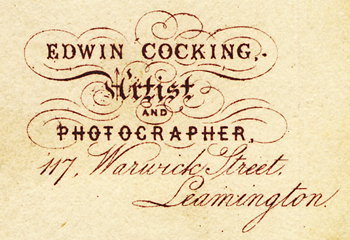 EDWIN COCKING,
Artist
AND
PHOTOGRAPHER,
117, Warwick Street.
Leamington.